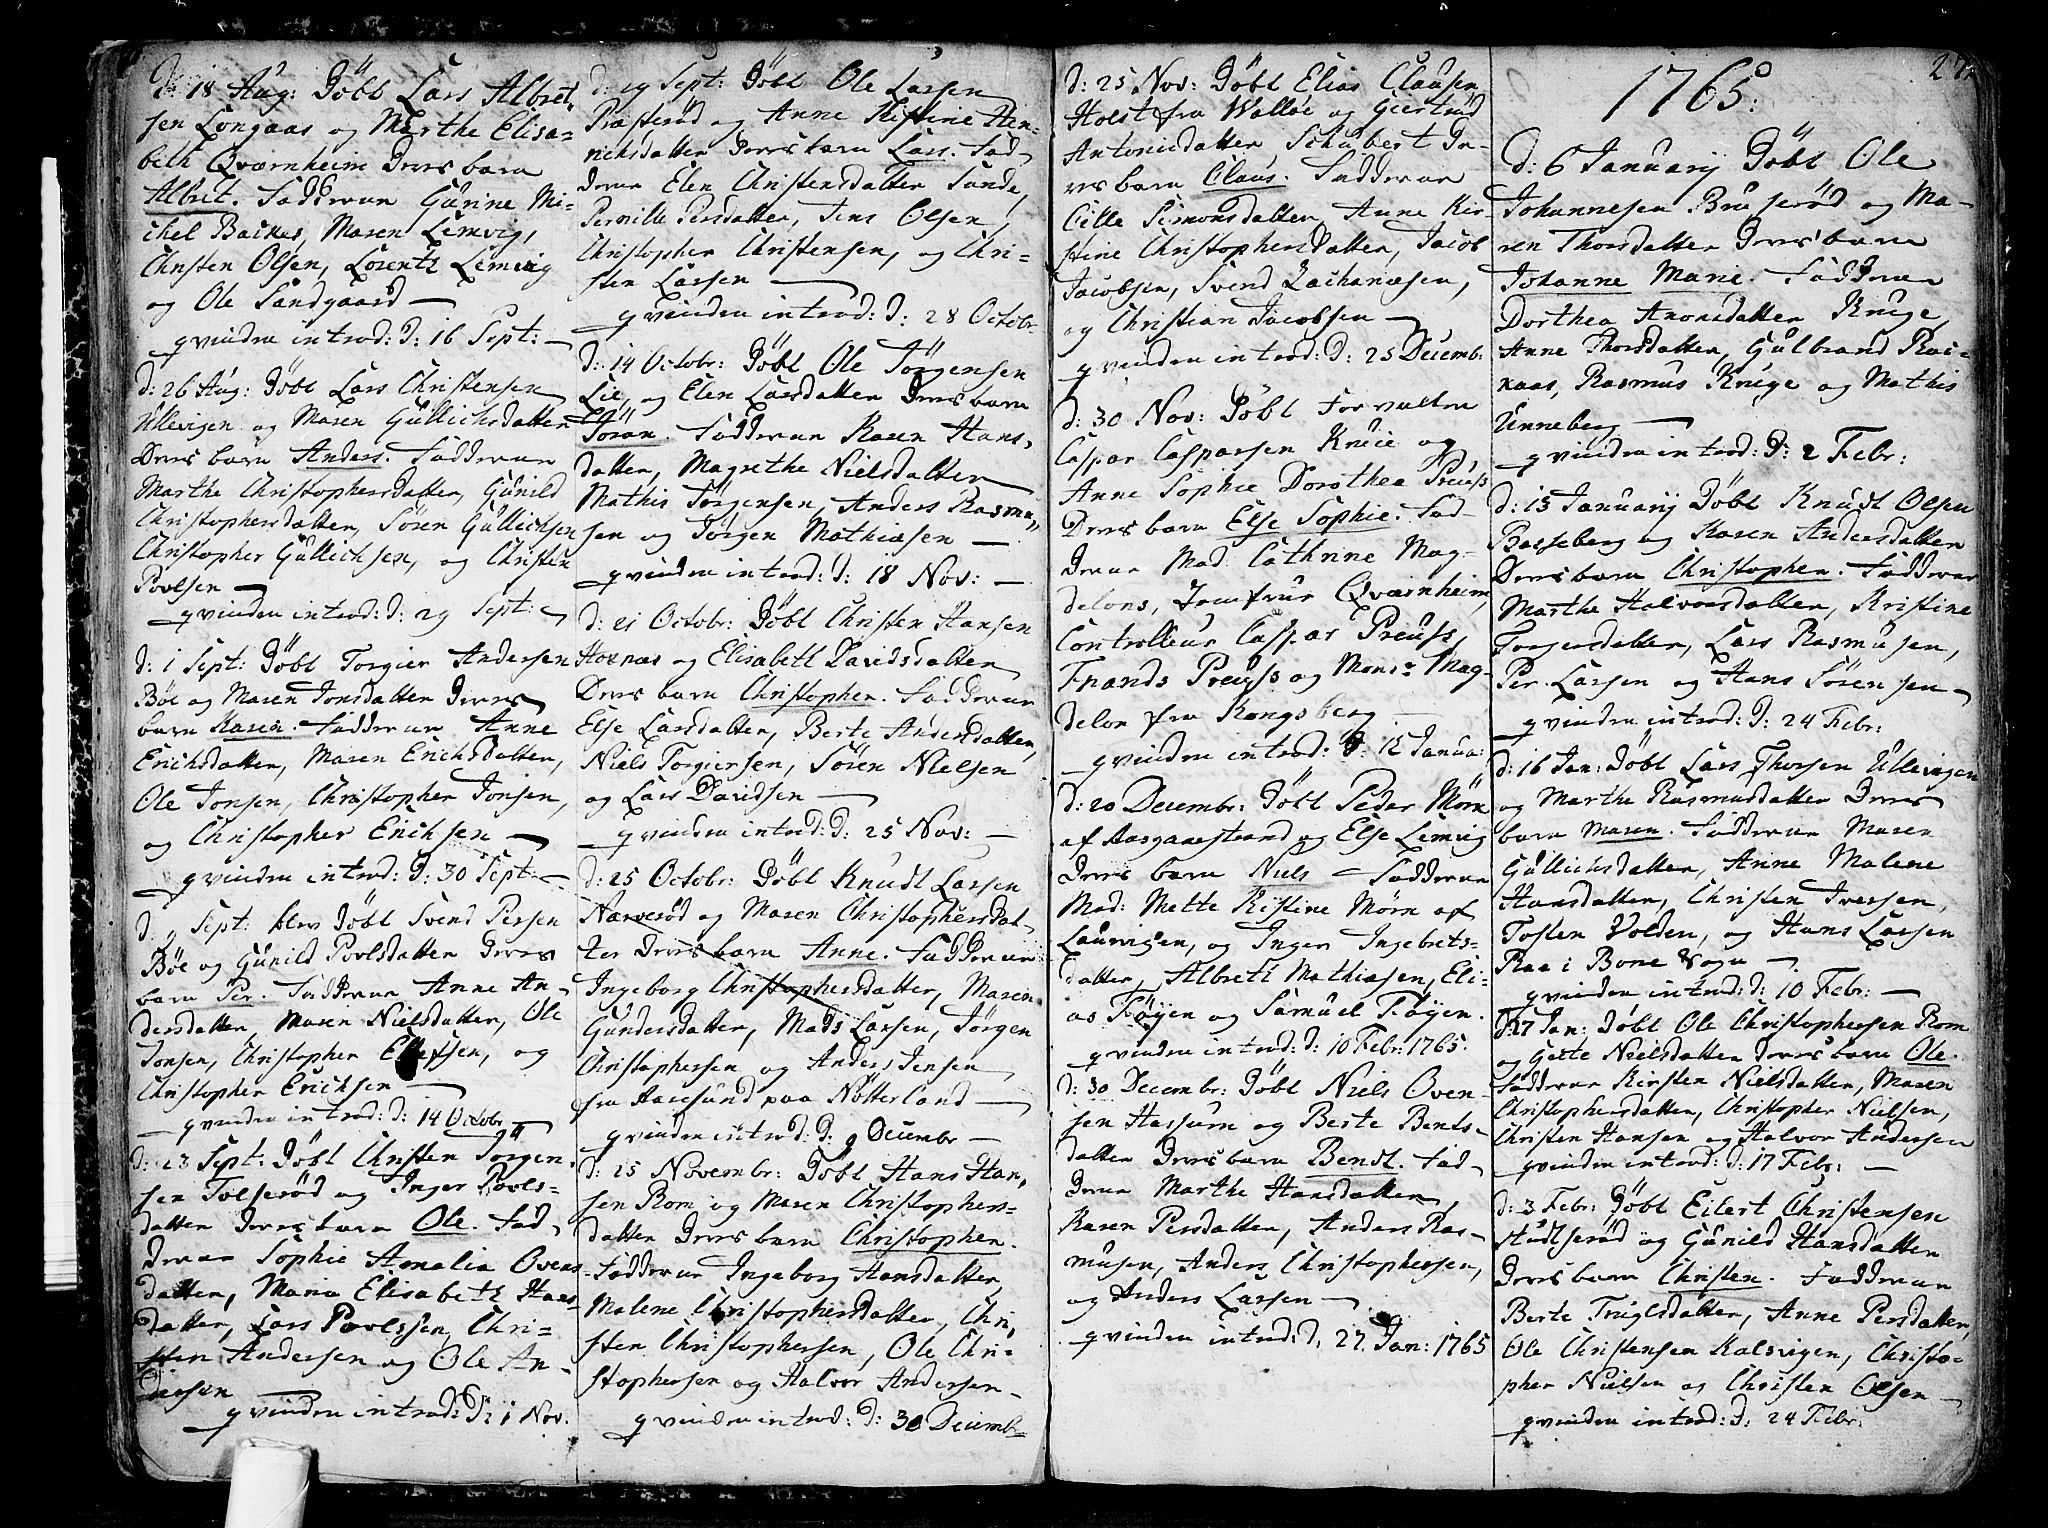 d: 18 Aug: Döbt Lars Albret,
sen Longaas og Marthe Elisa-
beth Qværnheim Deres barn
Albret. Fadderne Gurine Mi-
chel Backes, Maren Lemvig,
Christen Olsen, Lorentz Lemvig
og Ole Sandgaard —
qvinden introd: d: 16 Sept: —
d: 26 Aug: Döbt Lars Christensen
Ullevigen og Maren Gullichsdatter
Deres barn Anders. Fadderne
Marthe Christophersdatter, Gunild
Christophersdatter, Sören Gullichsen
Christopher Gullichsen, og Christen
Povlsen —
qvinden introd: d: 29 Sept: —
d: 1 Sept: Döbt Torgier Andersen
Böe og Maren Jonsdatter Deres
barn Karen. Fadderne Anne
Erichsdatter, Maren Erichsdatter,
Ole Jonsen, Christopher Jonsen,
og Christopher Erichsen —
qvinden introd: d: 30 Sept: —
d: 9 Sept: blev Döbt Svend Persen
Böe og Gunild Povlsdatter Deres
barn Per. Fadderne Anne An-
dersdatter, Maren Nielsdatter, Ole
Jonsen, Christopher Ellefsen, og
Christopher Erichsen —
qvinden introd: d: 14 Octobr
d: 23 Sept: Döbt Christen Jörgen
sen Tolserød og Inger Povls-
datter Deres barn Ole. Fad-
derne Sophie Amalia Ovens
datter, Maria Elisabeth Hans
datter, Lars Povlssen, Chri-
sten Andersen og Ole An-
dersen
qvinden introd: d: 1 Nov.
d: 29 Sept: Döbt Ole Larsen
Præsterød og Anne Kistine Hen-
richsdatter Deres barn Lars. Fad-
derne Elen Christensdatter Sunde,
Pernille Persdatter, Jens Olsen,
Christopher Christensen, og Chri-
sten Larsen —
qvinden introd: d: 28 Octobr
d: 14 Octobr: Döbt Ole Jörgensen
Lie, og Elen Larsdatter Deres barn
Jöran. Fadderne Karen Hans,
datter, Magrethe Nielsdatter
Mathis Jörgensen, Anders Rasmu,
sen og Jörgen Mathiasen —
qvinden introd: d: 18 Nov: —
d: 21 Octobr: Döbt Christen Hansen
Hoxnæs og Elisabeth Davidsdatter
Deres barn Christopher. Fadderne
Else Larsdatter, Berte Andersdatter,
Niels Torgiersen, Sören Nielsen
og Lars Davidsen —
qvinden introd: d: 25 Nov: —
d: 25 Octobr: Döbt Knudt Larsen
Narverød og Maren Christophersdat-
ter Deres barn Anne. Fadderne
Ingeborg Christophersdatter, Maren
Gundersdatter, Mads Larsen, Jörgen
Christophersen og Anders Jensen
fra Aaresund paa Nötterland —
qvinden introd: d: 9 Decembr —
d: 25 Novembr: Döbt Hans Han,
sen Rom og Maren Christophers-
datter Deres barn Christopher.
Fadderne Ingeborg Hansdatter,
Malene Christophersdatter, Chri,
sten Christophersen, Ole Chri-
stophersen og Halvor Andersen-
qvinden introd: d: 30 Decemb-
d: 25 Nov: Döbt Elias Clausen
Holst fra Walløe og Geertrud
Antonisdatter Schubert De-
res barn Claus. Fadderne
Cille Simonsdatter, Anne Kir-
stine Christophersdatter, Jacob
Jacobsen, Svend Zachariasen,
og Christian Jacobsen —
qvinden introd: d: 25 Decemb:
d: 30 Nov: Döbt Forvalter
Caspar Casparsen Knue og
Anne Sophie Dorothea Preuss
Deres barn Else Sophie. Fad-
derne Mad. Cathrine Mag-
delons, Jomfrue Qværnheim,
Controlleur Caspar Preuss,
Frands Preuss og Monsr Mag-
delon fra Kongsberg —
qvinden introd: d: 12 Janua:
d: 20 Decembr: Döbt Peder Mörn
af Aasgaarstrand og Else Lemvig
Deres barn Niels — Fadderne
Mad: Mette Kistine Mörn af
Laurvigen, og Inger Ingebrets-
datter, Albreth Mathiasen, Eli-
as Föyen og Samuel Föyen.
qvinden introd: d: 10 Febr: 1765.
d: 30 Decembr: Döbt Niels Oven-
sen Hassum og Berte Bents-
datter Deres barn Bendt. Fad-
derne Marthe Hansdatter,
Karen Persdatter, Anders Ras-
musen, Anders Christophersen,
og Anders Larsen —
qvinden introd: d, 27. Jan: 1765
1765:
d: 6 Januarij Döbt Ole
Johannesen Bruserød og Ma-
ren Thorsdatter Deres barn
Johanne Marie. Fadderne
Dorthea Aronsdatter Kruge,
Anne Thorsdatter, Gulbrand Ras-
naas, Rasmus Kruge og Mathis
Unneberg —
qvinden introd: d: 2 Febr:
d: 13 Januarij Döbt Knudt Olsen
Basseberg og Karen Andersdatter
Deres barn Christopher. Fadderne
Marthe Halvorsdatter, Kristine
Torgersdatter, Lars Rasmusen,
Per Larsen og Hans Sörensen —
qvinden introd: d: 24 Febr:
d: 16 Jan: Döbt Lars Thorsen Ullevigen
og Marthe Rasmusdatter Deres
barn Maren. Fadderne Maren
Gullichsdatter, Anne Malene
Hansdatter, Christen Iversen,
Tosten Volden, og Hans Larsen
Raa i Borre Sogn —
qvinden introd: d: 10 Febr: —
d: 27 Jan: Döbt Ole Christophersen Rom
og Gerte Nielsdatter Deres barn Ole.
Fadderne Kirsten Nielsdatter, Maren
Christophersdatter, Christopher Nielsen,
Christen Hansen og Halvor Andersen
qvinden introd: d: 17 Febr: —
d: 3 Febr: Döbt Eilert Christensen
Studtserød og Gunild Hansdatter
Deres barn Christen. Fadderne
Berte Truglsdatter, Anne Persdatter,
Ole Christensen Kalsvigen, Christo-
pher Nielsen og Christen Olsen —
qvinden introd: d: 24 Febr: